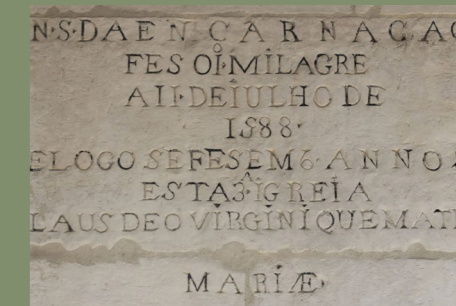 N·S·DA ENCARNAÇAO
FES O Iº MILAGRE
A II·DE IULHO DE
1588·
E LOGO SE FES EM 6·ANNOS
ESTA 3ª·IGREIA
LAUS DEO VIRGINIQUE MATRI
MARIÆ·